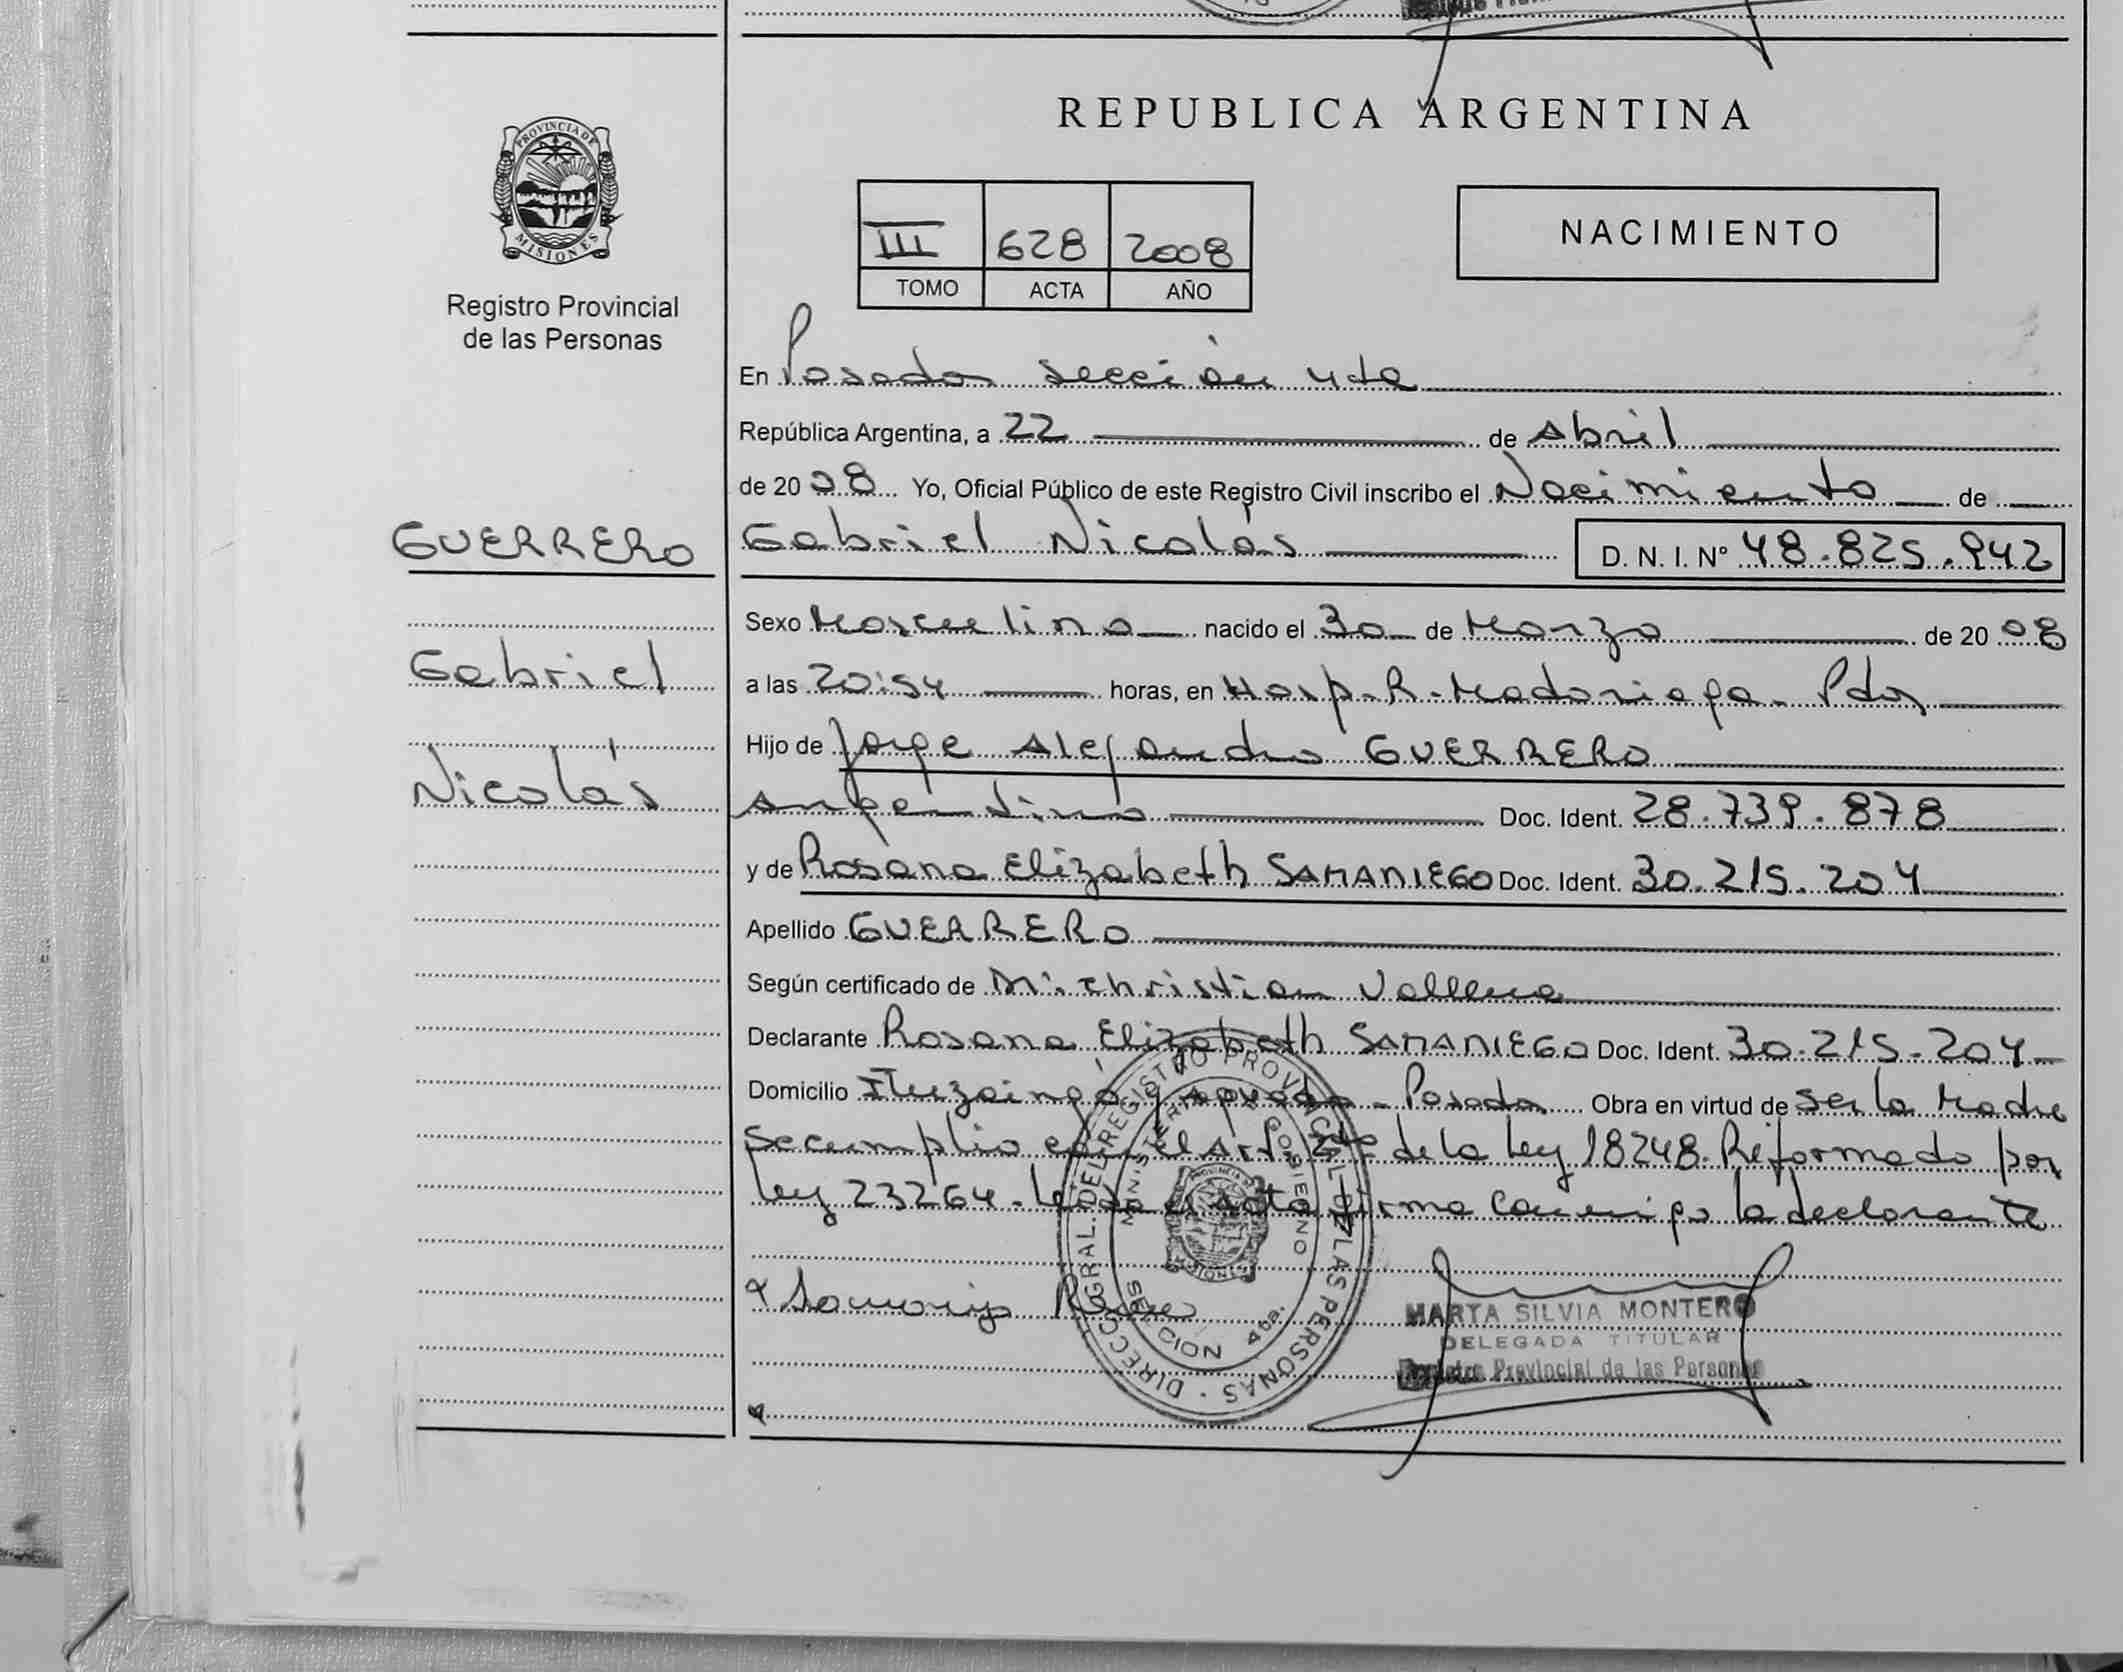 REPUBLICA ARGENTINA
PROVINCIA DE
MISIONES
Registro Provincial
de las Personas
III 628 2008
TOMO ACTA AÑO
NACIMIENTO
En Posadas Sección 4ta
República Argentina, a 22 de Abril
de 2008 Yo, Oficial Público de este Registro Civil inscribo el Nacimiento de
GUERRERO
Gabriel Nicolás D. N. I. Nº 48.825.942
Sexo Masculino nacido el 30 de Marzo de 2008
Gabriel
a las 20:54 horas, en Hosp. R. Madariaga - Pdas
Hijo de Jorge Alejandro GUERRERO
Nicolás
Argentino Doc. Ident. 28.739.878
y de Rosana Elizabeth SAMANIEGO Doc. Ident. 30.215.204
Apellido GUERRERO
Según certificado de Christian
Declarante Rosana Elizabeth SAMANIEGO Doc. Ident. 30.215.204
Domicilio Ituzaingó y - Posadas Obra en virtud de Ser la Madre
Se cumplio con el Art. de la Ley 18248. Reformado por
Ley 23264. Leida el acta firma conmigo la declarante
DIRECC. GRAL. DEL REGISTRO PROVINCIAL DE LAS PERSONAS
MINISTERIO DE GOBIERNO
PROVINCIA DE
MISIONES
SECCION 4ta.
MARTA SILVIA MONTERO
DELEGADA TITULAR
Registro Provincial de las Personas